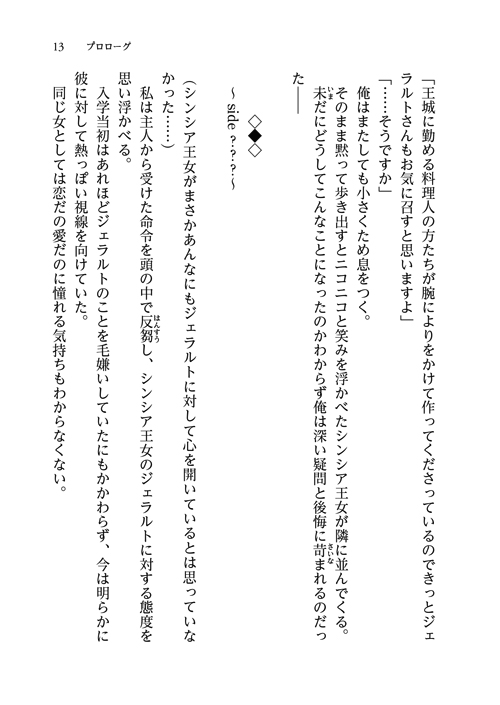 13　プロローグ
「王城に勤める料理人の方たちが腕によりをかけて作ってくださっているのできっとジェ
ラルトさんもお気に召すと思いますよ」
「……そうですか」
　俺はまたしても小さくため息をつく。
　そのまま黙って歩き出すとニコニコと笑みを浮かべたシンシア王女が隣に並んでくる。
　未だにどうしてこんなことになったのかわからず俺は深い疑問と後悔に苛まれるのだっ
た――
◇◆◇
～ side ？？？～
（シンシア王女がまさかあんなにもジェラルトに対して心を開いているとは思っていな
かった……）
　私は主人から受けた命令を頭の中で反芻し、シンシア王女のジェラルトに対する態度を
思い浮かべる。
　入学当初はあれほどジェラルトのことを毛嫌いしていたにもかかわらず、今は明らかに
彼に対して熱っぽい視線を向けていた。
　同じ女としては恋だの愛だのに憧れる気持ちもわからなくない。